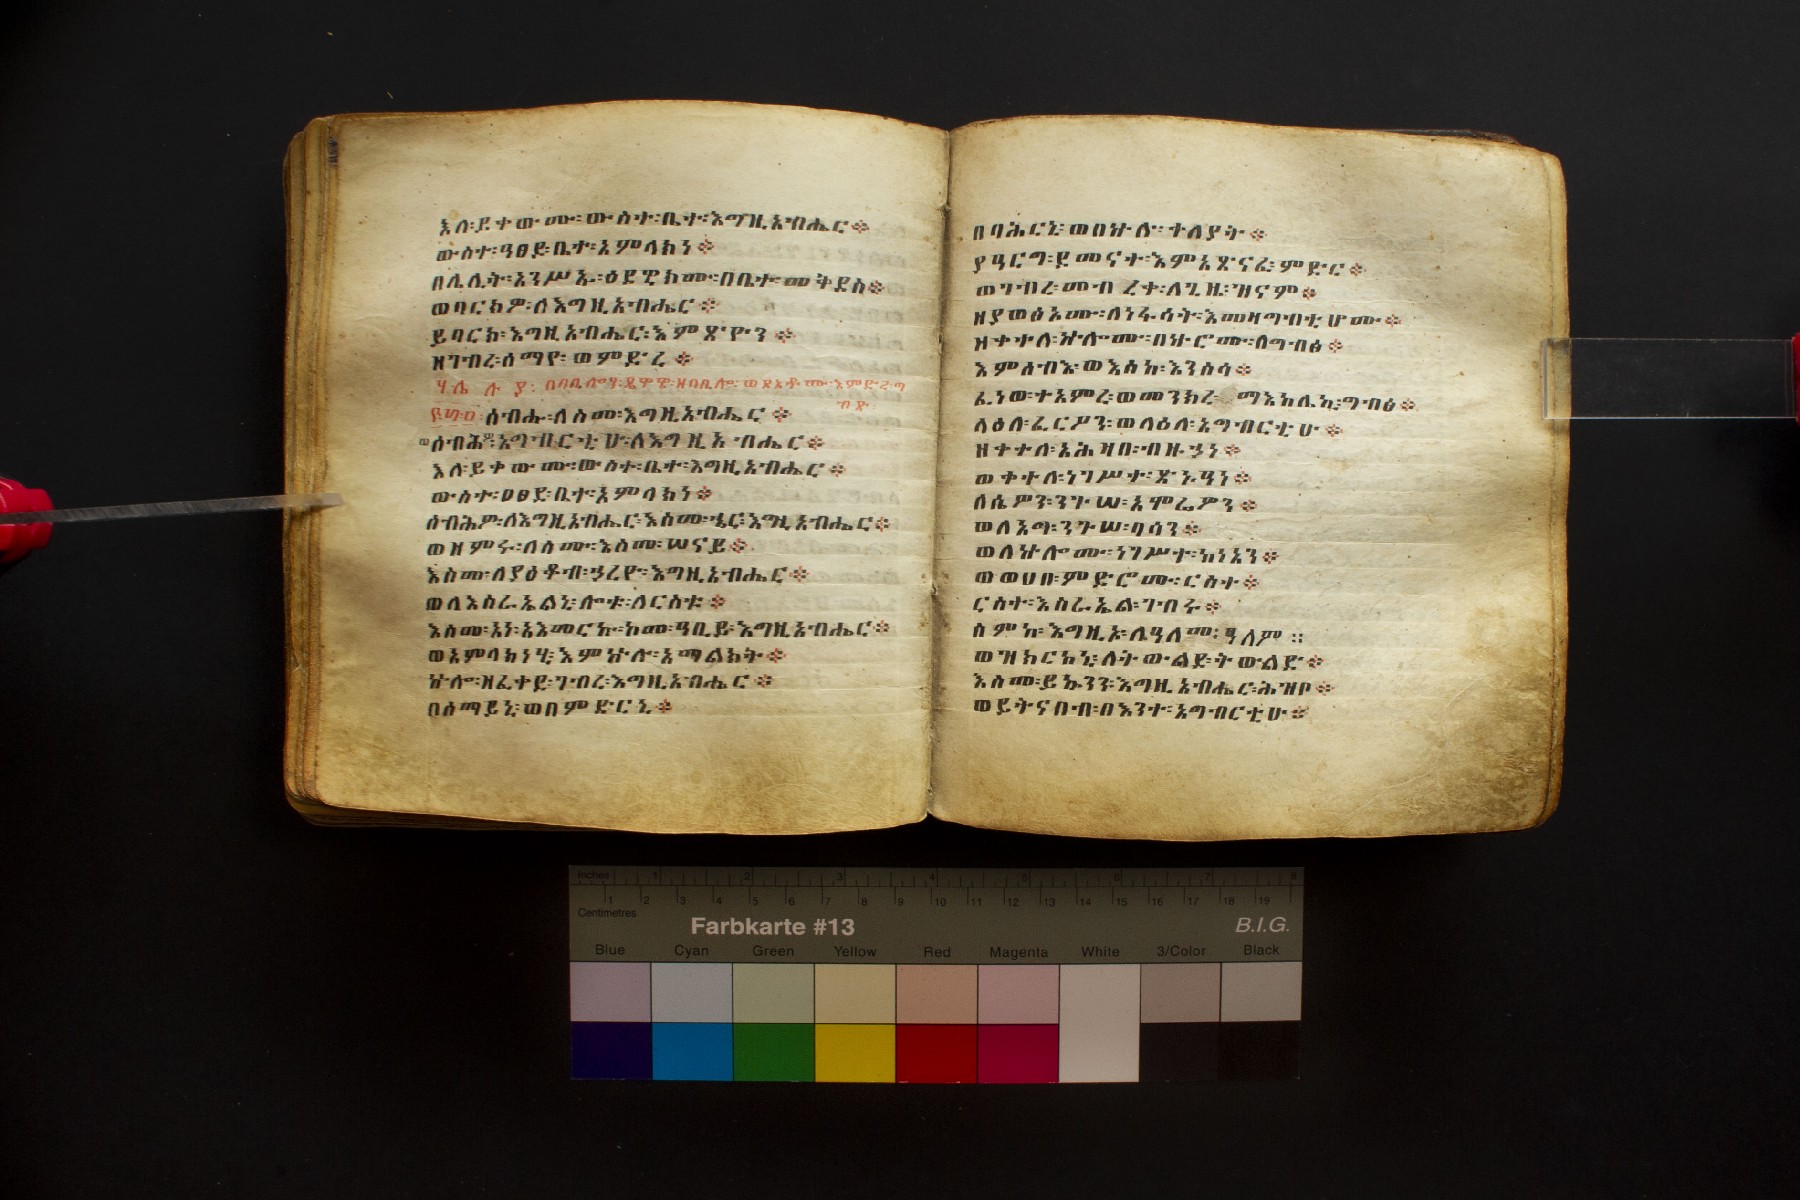 እለ፡ይቀውሙ፡ውስተ፡ቤተ፡እግዚአብሔር፨
ውስተ፡ዓፀይ፡ቤተ፡አምላክነ፨
በሌሊት፡አንሥኡ፡እደዊክሙ፡በቤተ፡መቅደስ፨
ወባርክዎ፡ለእግዚአብሔር፨
ይባርክ፡እግዚአብሔር፡እምጽዮን፨
ዘገብረ፡ሰማየ፡ወምድረ፨
ሃሌ ሉ ያ፡
ሰብሑ፡ለስመ፡እግዚአብሔር፨
ሰብሕዎ፡አግብርቲሁ፡ለእግዚአብሔር፨
እለ፡ይቀውሙ፡ውስተ፡ቤተ፡እግዚአብሔር፨
ውስተ፡ዐፀደ፡ቤተ፡አምላክነ፨
ሰብሕዎ፡ለእግዚአብሔር፡እስመ፡ኄር፡እግዚአብሔር፨
ወዘምሩ፡ለስሙ፡እስመ፡ሠናይ፨
እስመ፡ለያዕቆብ፡ኃረየ፡እግዚአብሔር፨
ወለእስራኤልኒ፡ሎቱ፡ለርስቱ፨
እስመ፡አነ፡አእመርኩ፡ከመ፡ዓቢይ፡እግዚአብሔር፨
ወአምላክነሂ፡እምኵሉ፡አማልክት፨
ኵሎ፡ዘፈቀደ፡ገብረ፡እግዚአብሔር፨
በሰማይኒ፡ወበምድርኒ፨
በባሕርኒ፡ወበኵሉ፡ተለያት፨
ያዓርግ፡ደመናተ፡እምአጽናፈ፡ምድር፨
ወገብረ፡መብረቀ፡ለጊዜ፡ዝናም፨
ዘያወፅኦሙ፡ለነፋሳት፡እመዛግብቲሆሙ፨
ዘቀተለ፡ኵሎሙ፡በኵሮሙ፡ለግብፅ፨
እምሰብእ፡ወእስከ፡እንስሳ፨
ፈነወ፡ተአምረ፡ወመንክረ፡ ማእከሌኪ፡ግብፅ፨
ላዕለ፡ፈርዖን፡ወላዕለ፡አግብርቲሁ፨
ዘቀተለ፡አሕዛበ፡ብዙኃነ፨
ወቀተለ፡ነገሥተ፡ጽኑዓነ፨
ለሴዎን፡ንጉሠ፡አሞሬዎን፨
ወለአግ፡ንጉሠ፡ባሳን፨
ወለኵሎሙ፡ነገሥተ፡ከነአን፨
ወወሀበ፡ምድሮሙ፡ርስተ፨
ርስተ፡እስራኤል፡ገብሩ፨
ስምከ፡እግዚኦ፡ለዓለም፡ዓለም ፡፡
ወዝክርከኒ፡ለትውልደ፡ትውልድ፨
እስመ፡ይኴንን፡እግዚአብሔር፡ሕዝቦ፨
ወይትናበብ፡በእንተ፡አግብርቲሁ፨

Farbkarte #13
B.I.G.
Inches 1 2 3 4 5 6 7 8
Centimetres 1 2 3 4 5 6 7 8 9 10 11 12 13 14 15 16 17 18 19
Blue Cyan Green Yellow Red Magenta White 3/Color Black